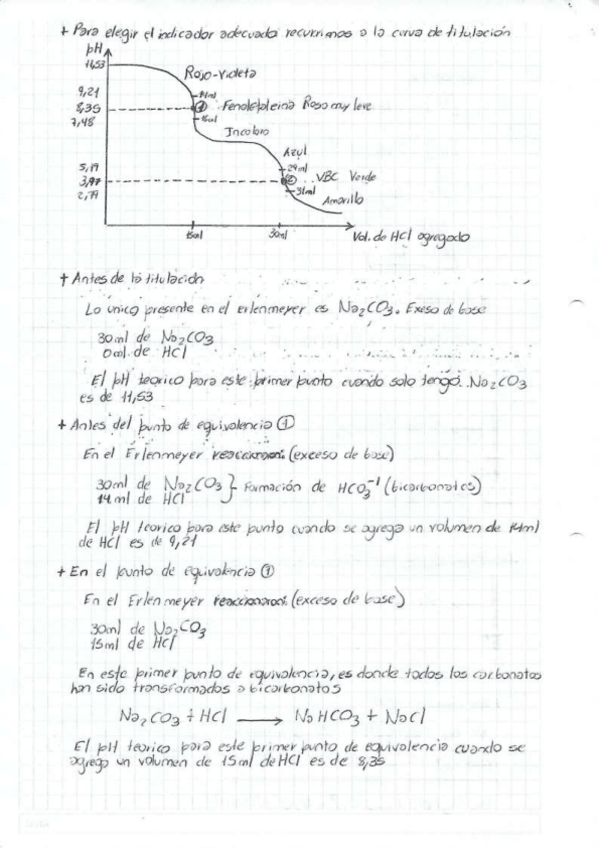 + Para elegir el indicador adecuado recurrimos a la curva de titulación
pH
11,53
Rojo-Violeta
9,21
14ml
8,35
① Fenolftleina Rosa muy leve
7,48
16ml
Incoloro
Azul
5,19
29ml
3,97
② VBC Verde
2,79
31ml
Amarillo
15ml
30ml
Vol. de HCl agregado
+ Antes de la titulación
Lo unico presente en el erlenmeyer es Na2CO3. Exeso de base
30ml de Na2CO3
0ml de HCl
El pH teorico para este primer punto cuando solo tengo Na2CO3
es de 11,53
+ Antes del punto de equivalencia ①
En el Erlenmeyer (exceso de base)
30ml de Na2CO3 } Formación de HCO3⁻¹ (bicarbonatos)
14ml de HCl
El pH teorico para este punto cuando se agrega un volumen de 14ml
de HCl es de 9,21
+ En el punto de equivalencia ①
En el Erlenmeyer (exceso de base)
30ml de Na2CO3
15ml de HCl
En este primer punto de equivalencia, es donde todos los carbonatos
han sido transformados a bicarbonatos
Na2CO3 + HCl → NaHCO3 + NaCl
El pH teorico para este primer punto de equivalencia cuando se
agrega un volumen de 15ml de HCl es de 8,35